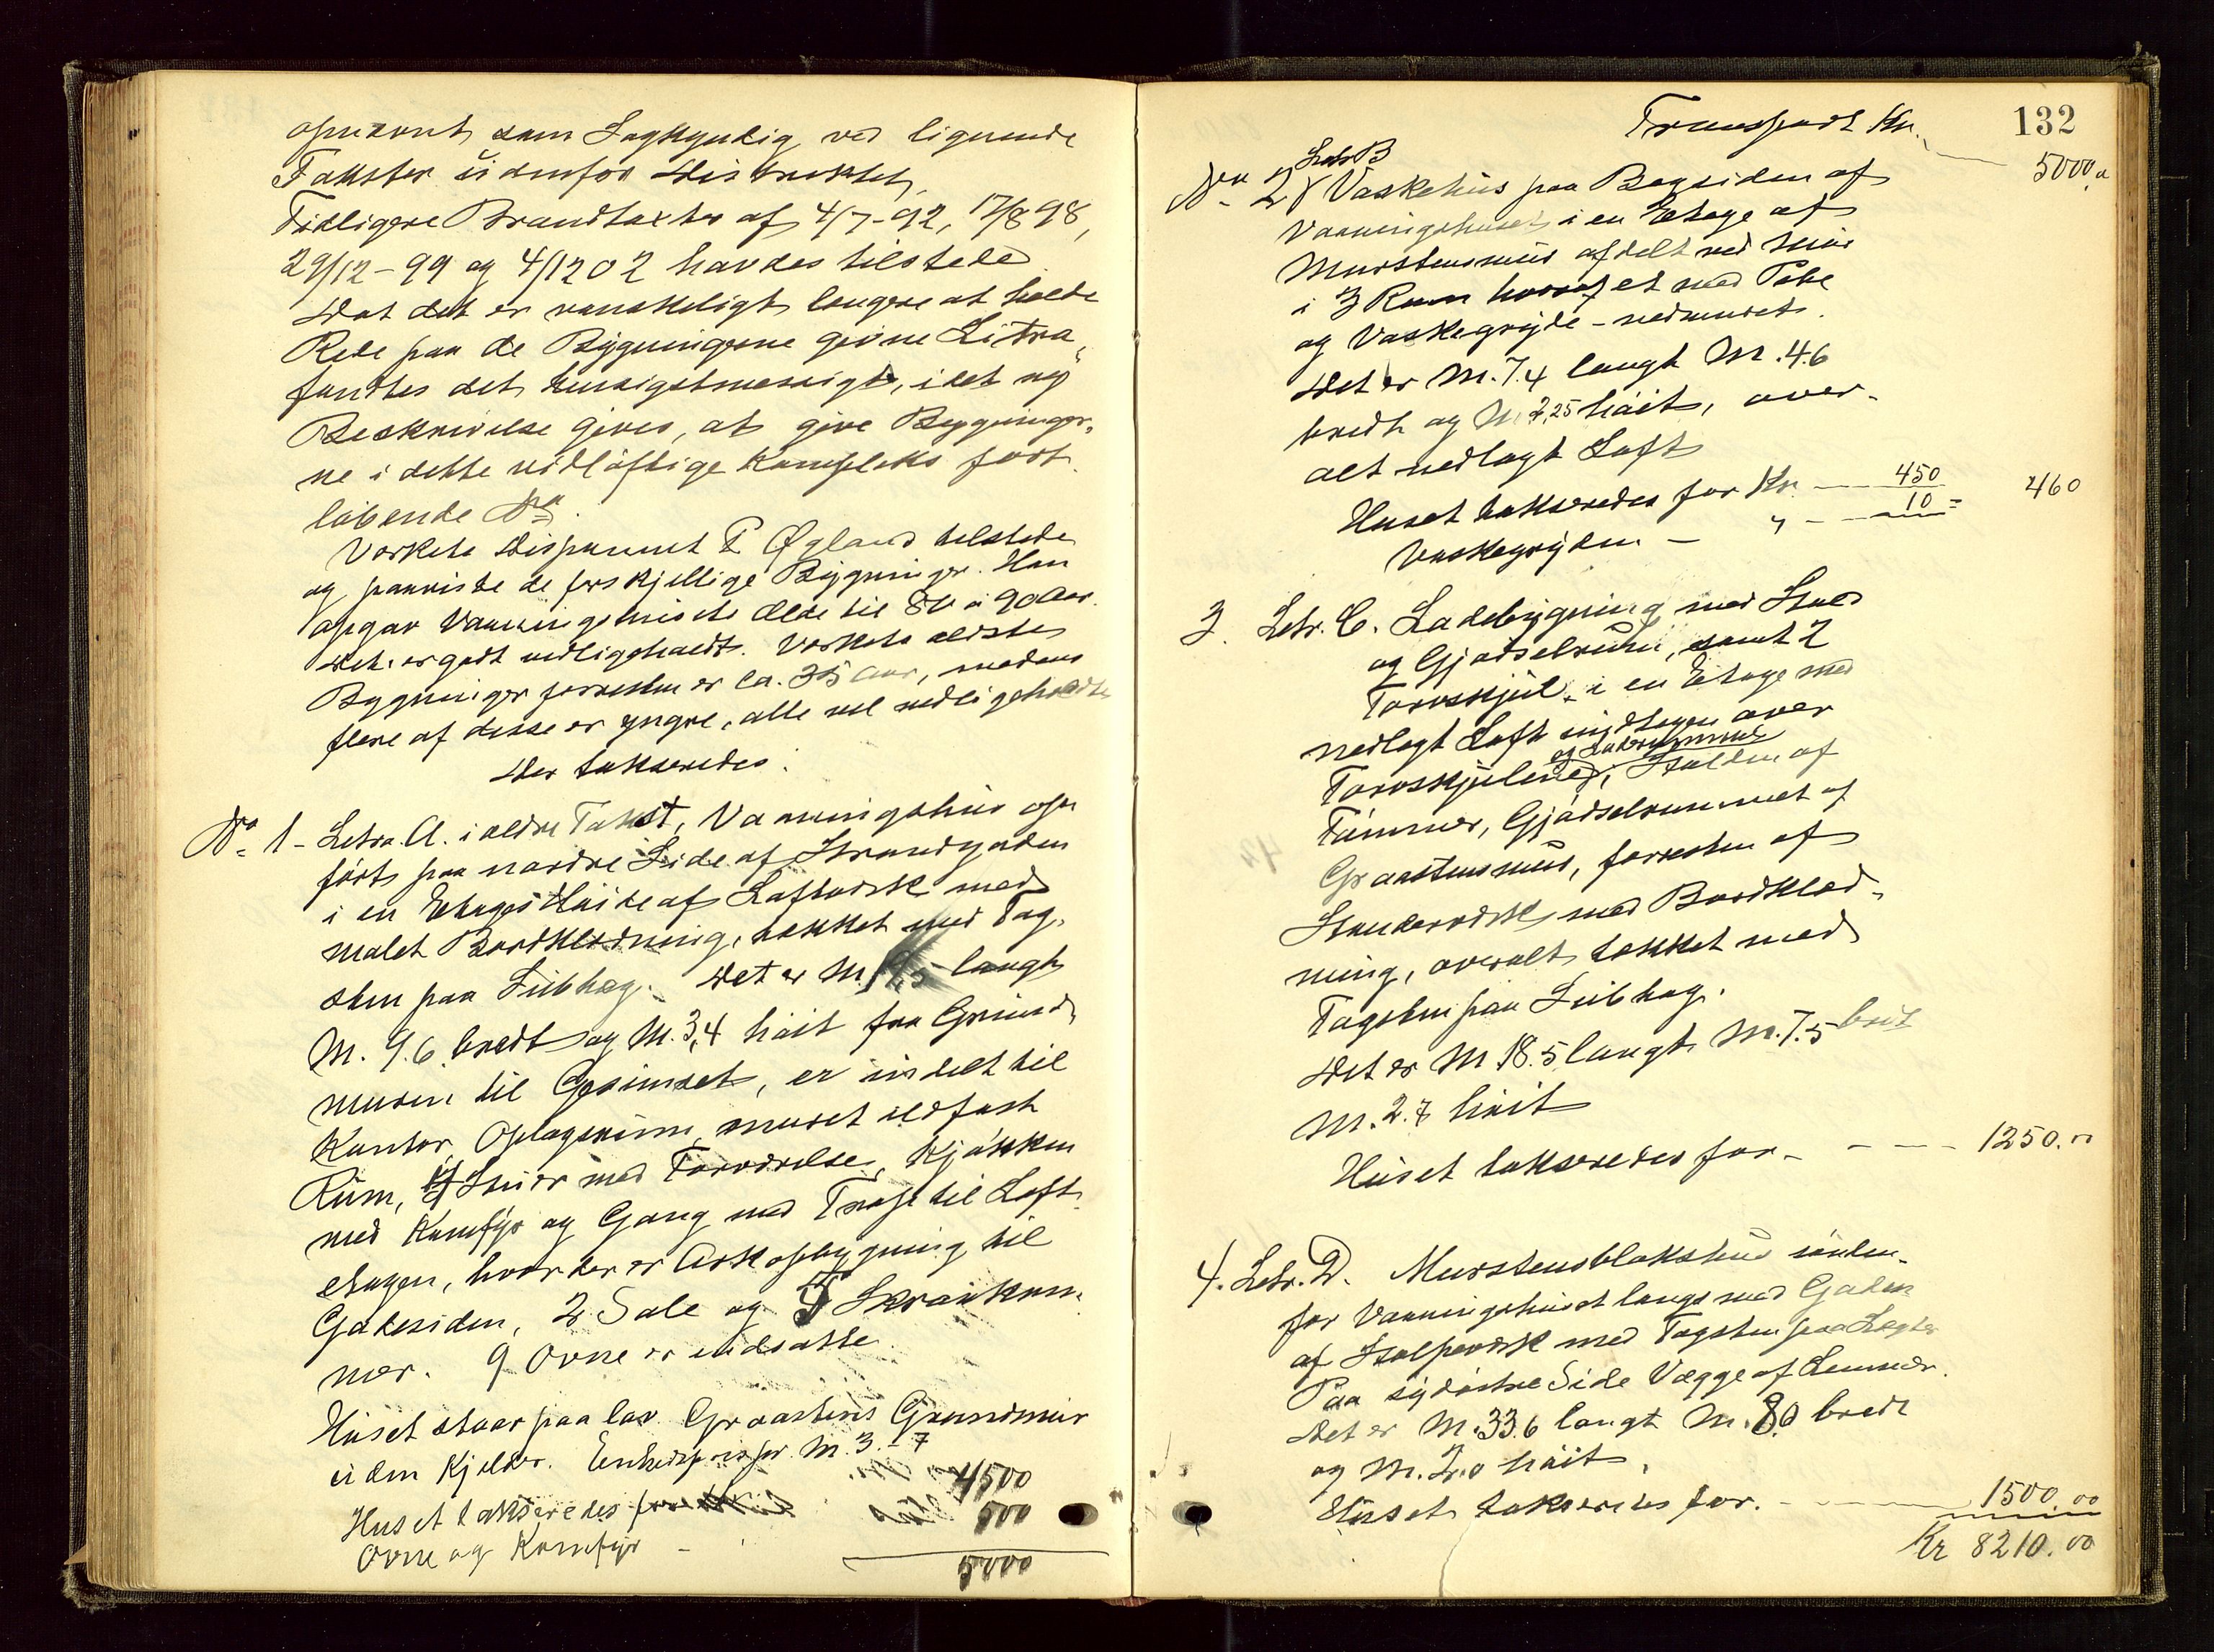 opnævnt som Sagkyndig ved lignende
Takster udenfor Distriktet.
Tidligere Brandtaxter af 4/7-92, 17/8 98,
29/12-99 og 4/12 02 havdes tilstede
Da det er vanskeligt længere at holde
Rede paa de Bygningerne givne Litra,
fandtes det hensigtmæssigt, idet ny
Beskrivelse gives, at give Bygninger-
ne i dette vidløftige Kompleks fort
løbende No.
Verkets Disponent P. Øgland tilstede
og paaviste de forskjellige Bygninger. Han
opgav Vaaningshusets Ælde til 80 à 90 Aar.
Det er godt vedligeholdt. Verkets ældste
Bygninger forresten er ca. 35 Aar, medens
flere af disse er yngre, alle vel vedligeholdte
Der takseredes:
No. 1 - Letra. A. i ældre Takst, Vaaningshus op
ført paa nordre Side af Strandgaden
i en Etages Høide af Laftværk med
malet Bordklædning, tækket med Tag-
sten paa Subtag. Det er M. langt
M. 9.6 bredt og M. 3,4 høit fra Grund
muren til Gesimset, er inddelt til
Kontor, Oplagsrum, muret ildfast
Rum, 4 Stuer med Forværelse, Kjøkken
med Komfyr og Gang med Trap til Loft
etagen, hvor der er Arkopbygning til
Gadesiden, 2 Sale og 4 Skraakam
mer. 9 Ovne er indsatte
Huset staar paa lav Graastens Grundmur
uden Kjelder. Enhedspris pr. M. 3. - 7
4500
Huset takseredes for
500
Ovne og Komfyr -
5000
132
Transport Kr. 5000.00
Letr B
No. 2 Vaskehus paa Bagsiden af
Vaaningshuset i en Etage af
Murstensmur afdelt ved Mur
i 3 Rum hvoraf et med Pibe
og Vaskegryde - nedmuret.
Det er M. 7.4 langt M. 4.6
bredt og M. 2,25 høit, over-
alt nedlagt Loft
Huset takseredes for Kr. - 450
Vaskegryden - " - 10 = 460
3. Letr. C. Ladebygning med Stald
og Gjødselrum, samt 2
Torvskjul, i en Etage med
nedlagt Loft undtagen over
og Laderummene
Torvskjulene, Stalden af
Tømmer, Gjødselrummet af
Graastensmur, forresten af
Standerværk med Bordklæd-
ning, overalt tækket med
Tagsten paa Subtag.
Det er M 18.5 langt M. 7.5 bredt
M. 2.7 høit
Huset takseredes for - - - - 1250.00
4. Letr. D. Murstensblokshus vønden-
for Vaaningshuset langs med Gaden
af Stolpeværk med Tagsten paa Lægter
Paa sydøstre Side Vægge af Lemmer.
Det er M. 33.6 langt M. 8.0 bredt
og M. 2.0 høit,
Huset takseredes for. - 1500.00
Kr 8210.00